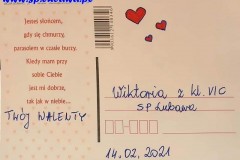 Jesteś słońcem,
gdy się chmurzy,
parasolem w czasie burzy.
Kiedy mam przy
sobie Ciebie
jest mi dobrze,
tak jak w niebie...
TWÓJ WALENTY
Wiktoria z kl. VIc
SP Lubawa
14.02.2021